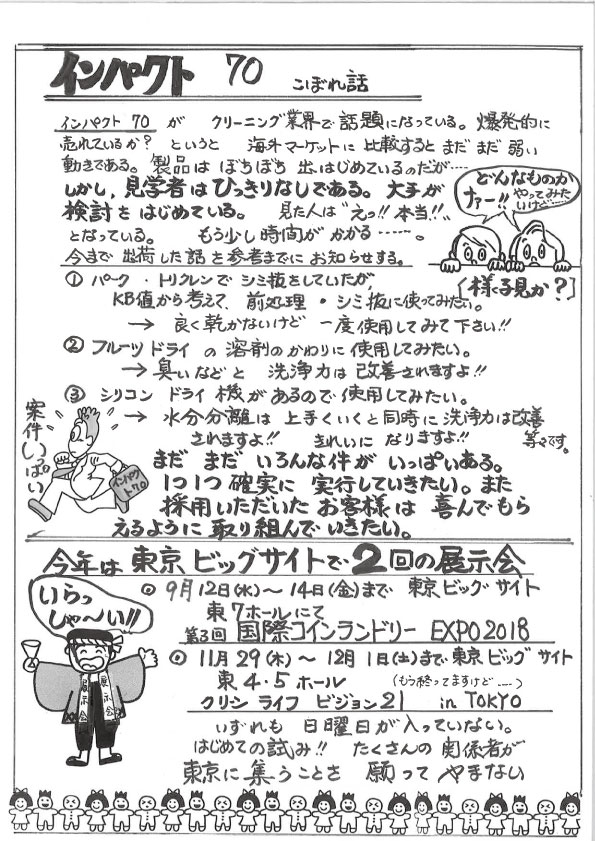 インパクト 70 こぼれ話
インパクト 70 が クリーニング業界で話題になっている。爆発的に
売れているか? というと 海外マーケットに比較するとまだまだ弱い
動きである。製品はぼちぼち出はじめているのだが……
しかし、見学者はひっきりなしである。大手が
検討をはじめている。 見た人は"えっ!!本当!!"
となっている。 もう少し時間がかかる……。
今まで出荷した話を参考までにお知らせする。
どんなものか
ナァー!! やってみたいけど……
[様子見か?]
① パーク・トリクレンでシミ抜をしていたが、
KB値から考えて、前処理・シミ抜に使ってみたい。
→ 良く乾かないけど 一度使用してみて下さい!!
② フルーツドライの溶剤のかわりに使用してみたい。
→ 臭いなどと 洗浄力は改善されますよ!!
③ シリコンドライ機があるので使用してみたい。
→ 水分分離は上手くいくと同時に洗浄力は改善
されますよ!! きれいになりますよ!! 等々です。
案件いっぱい
インパクト70
まだまだいろんな件がいっぱいある。
1つ1つ確実に実行していきたい。また
採用いただいたお客様は喜んでもら
えるように取り組んでいきたい。
今年は東京ビッグサイトで2回の展示会
◎ 9月12日(水)～14日(金)まで 東京ビッグサイト
東7ホールにて
第3回 国際コインランドリー EXPO2018
◎ 11月29(木)～12月1日(土)まで東京ビッグサイト
東4・5ホール (もう終ってますけど……)
クリンライフビジョン21 in TOKYO
いらっ
しゃ～い!!
展示会
展示会
いずれも 日曜日が入っていない。
はじめての試み!! たくさんの関係者が
東京に集うことを 願って やまない